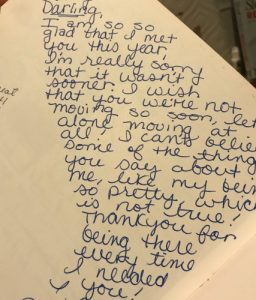 Darling,
I am so so
glad that I met
you this year,
I'm really sorry
that it wasn't
sooner. I wish
that you we're not
moving so soon, let
alone moving at
all! I can't believe
some of the thing
you say about
me, like my bein
so pretty, which
is not true!
Thankyou for
being there
every time
I needed
you!